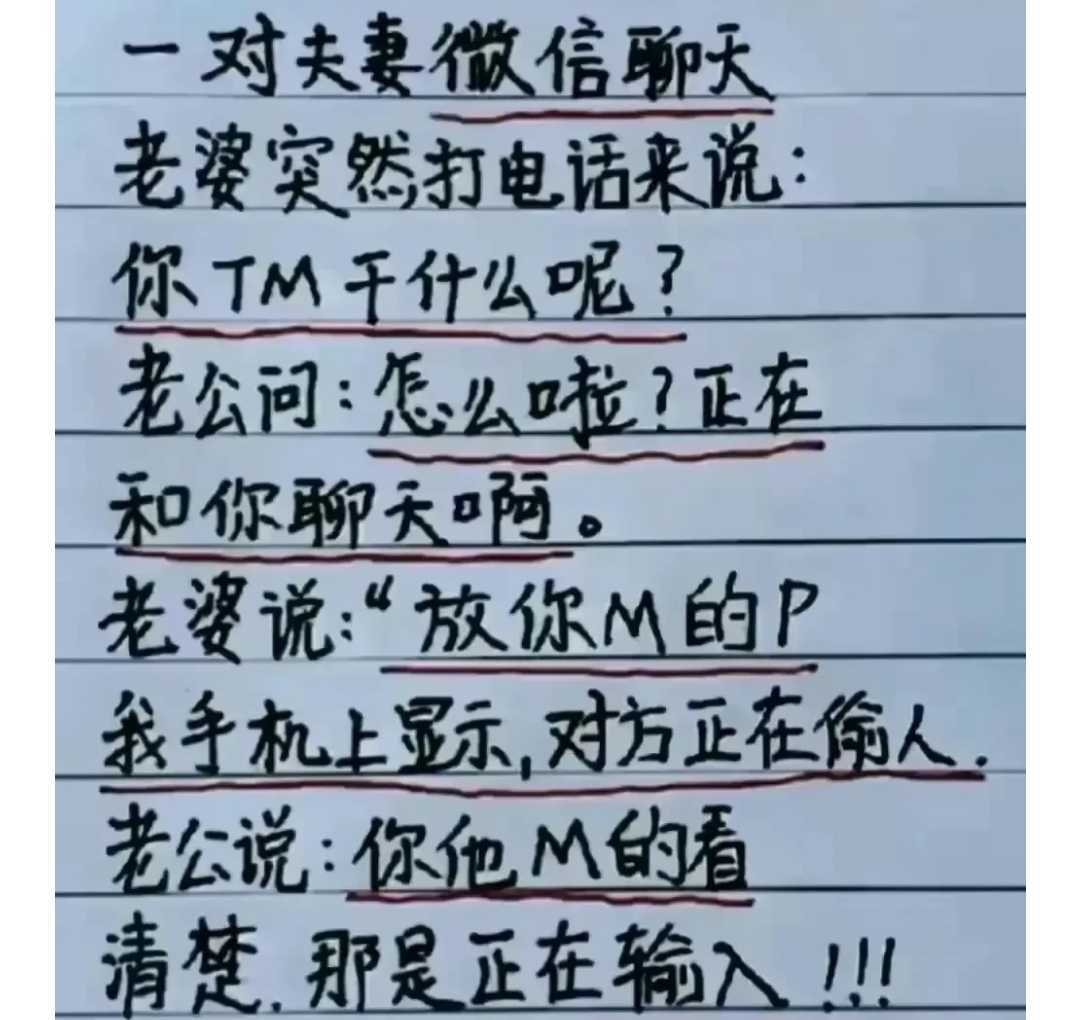 一对夫妻微信聊天
老婆突然打电话来说：
你TM干什么呢？
老公问：怎么啦？正在
和你聊天啊。
老婆说：“放你M的P
我手机上显示，对方正在偷人．
老公说：你他M的看
清楚．那是正在输入！！！